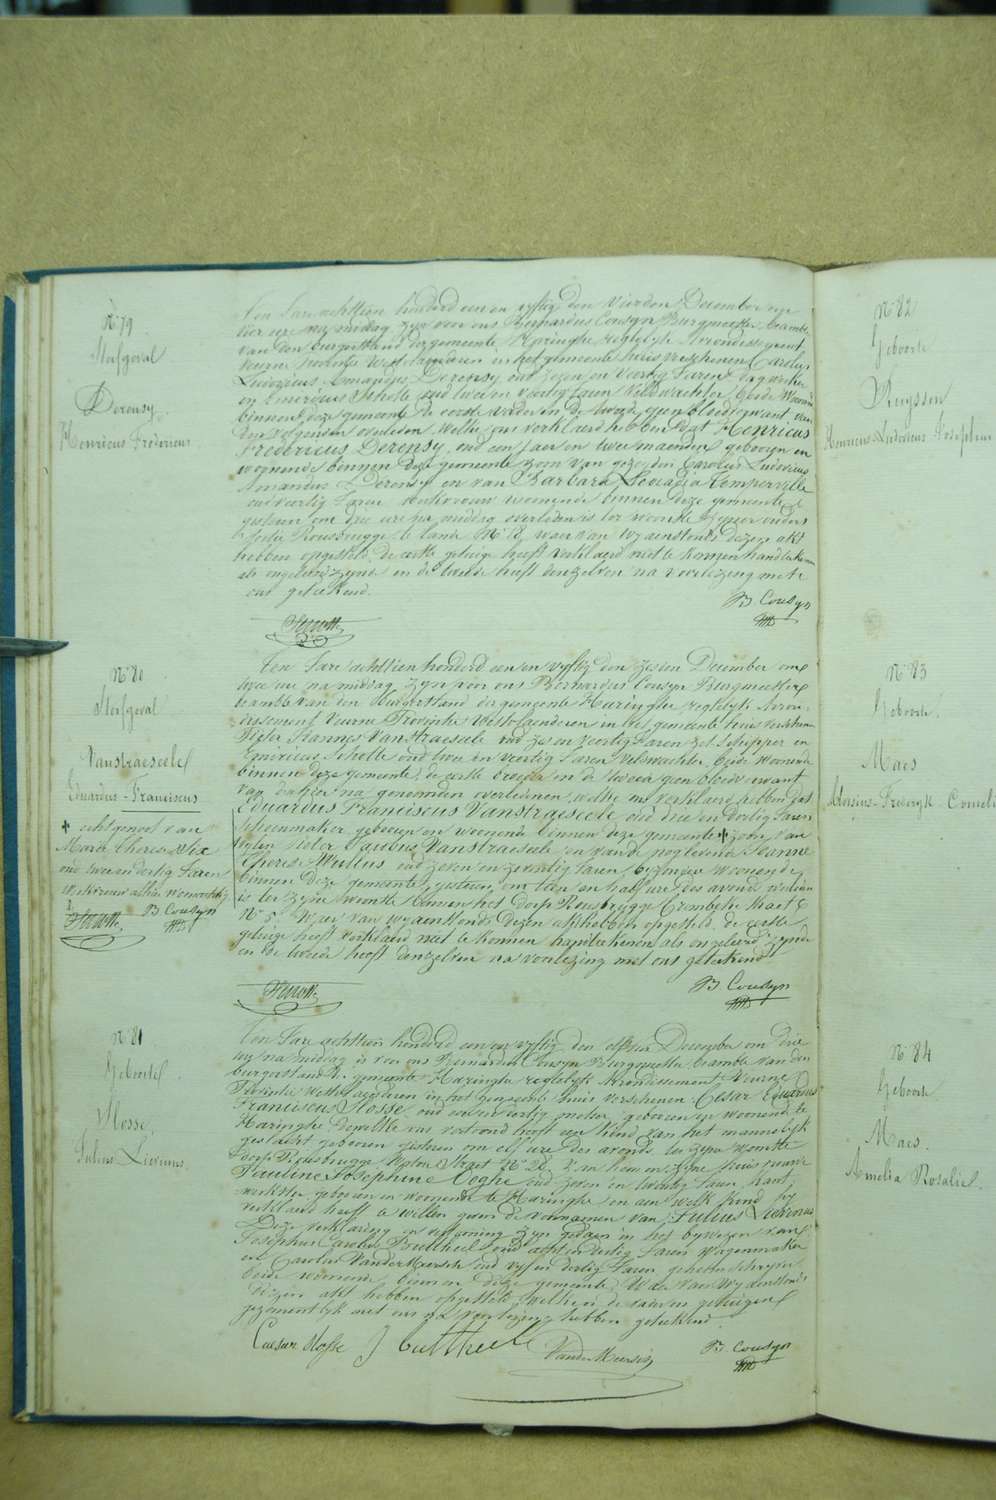 N° 79
Sterfgeval
Derensy
Henricus Fredericus
Ten Jare achttien honderd een en vyftig den vierden December op
vier ure na middag zyn voor ons Bernardus Cousyn Burgmeester beambte
van den burgerstand der gemeente Haringhe regtelyk Arrondissement
Veurne provintie West Vlaanderen in het gemeente huis verschenen Carolus
Ludovicus Amandus Derensy oud zeven en veertig Jaren dagwerker
en Emericus Scholte oud twee en veertig Jaren Veldwachter, beide Woonende
binnen deze gemeente de eerste vader en de tweede geen bloedverwant van
den volgenden overleden welke ons verklaerd hebben dat Henricus
Fredericus Derensy, oud een Jaer en twee maenden geboren en
woonende binnen deze gemeente zoon van gezegden Carolus Ludovicus
Amandus Derensy en van Barbara Leocadia
oud veertig Jaren werkvrouw woonende binnen deze gemeente
gisteren om drie ure na middag overleden is ter woonste zyner ouders
Rousbrugge N° 18, waer van wy aenstonds dezen akt
hebben opgesteld de eerste getuige heeft verklaerd niet te konnen handteekenen
als ongeleerd zynde en de tweede heeft denzelven na voorlezing met
ons geteekend.
B Cousyn
N° 80
Sterfgeval
Vanstraeseele
Eduardus-Franciscus
+ echtgenoot van
Marie Therese Six
oud twee en dertig Jaren
werkvrouw alhier woonachtig
B Cousyn
Ten Jare achttien honderd een en vyftig den zesden December om
twee ure na middag zyn voor ons Bernardus Cousyn Burgmeester
beambte van den Burgerstand der gemeente Haringhe regtelyk Arron-
dissement Veurne Provincie West-Vlaenderen in het gemeente huis verschenen
Pieter Joannes Vanstraeseele oud zes en veertig Jaren Schipper en
Emericus Scholte oud twee en veertig Jaren Veldwachter, beide Woonende
binnen deze gemeente, de eerste broeder en de tweede geen bloedverwant
van den hier na genoemden overledenen, welke ons verklaerd hebben dat
Eduardus Franciscus Vanstraeseele oud drie en dertig Jaren
Schoenmaker, geboren en woonende binnen deze gemeente + zoon van
wylen Pieter Jacobus Vanstraeseele en van de nog levende Joanne
Therese Wullus oud zeven en zeventig Jaren, byzondere woonende
binnen deze gemeente, gisteren om tien en half ure des avonds overleden
is ter zyner woonste binnen het dorp Rousbrugge Crombeke Straet
N° 5. Waer van wy aenstonds dezen akt hebben opgesteld, de eerste
getuige heeft verklaerd niet te konnen handteekenen als ongeleerd zynde
en de tweede heeft denzelven na voorlezing met ons geteekend
B Cousyn
N° 81
Geboorte
Hosse
Julius Livinus
Ten Jare achttien honderd een en vyftig den elfsten December om drie
ure na middag is voor ons Bernardus Cousyn Burgmeester beambte van den
burgerstand der gemeente Haringhe regtelyk Arrondissement Veurne
Provintie West Vlaenderen in het gemeente huis verschenen Cesar Eduardus
Franciscus Hosse oud een en veertig geboren en woonende te
Haringhe dewelke ons vertoond heeft een kind van het mannelyk
geslacht geboren gisteren om elf ure des avonds ter zyner woonste
dorp Rousbrugge Straet N° 28 van hem en zyne huisvrouwe
Pauline Josephine Ooghe oud zeven en twintig Jaren, kant
werkster geboren en woonende te Haringhe en aen welk kind hy
verklaerd heeft te willen geven de voornamen van Julius Livinus
Deze verklaring en vertooning zyn gedaen in het bywezen van
Josephus Carolus Buttheel oud acht en dertig Jaren Wagenmaker
en Carolus Vandermeersch oud vyf en dertig Jaren
beide woonende binnen deze gemeente. Waer van wy aenstonds
dezen akt hebben opgesteld, welken de vader en getuigen
gezamentlyk met ons na voorlezing hebben geteekend.
Caesar Hosse J Buttheel VanderMeersch B Cousyn
N° 82
Geboorte
Ruyssen
Henricus-Ludovicus Josephus
N° 83
Geboorte.
Maes
Aloysius-Frederyk-Corneli
N° 84
Geboorte
Maes.
Amelia Rosalie.